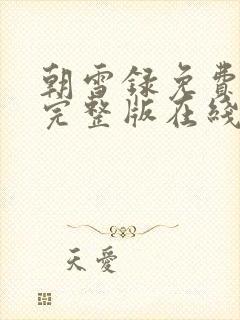 朝雪録免費
完整版在綫
天愛